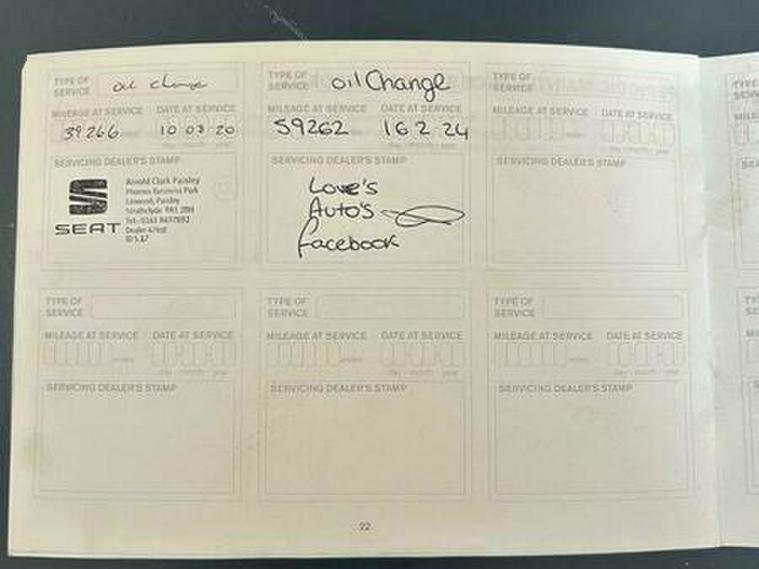 TYPE OF SERVICE oil change
MILEAGE AT SERVICE DATE AT SERVICE
39266 miles 10 03 20
day / month / year
SERVICING DEALER'S STAMP
SEAT
Arnold Clark Paisley
Phoenix Business Park
Linwood, Paisley
Strathclyde PA1 2BH
TYPE OF SERVICE oil Change
MILEAGE AT SERVICE DATE AT SERVICE
59262 16 2 24
day / month / year
SERVICING DEALER'S STAMP
Love's
Auto's
facebook
TYPE OF SERVICE
MILEAGE AT SERVICE DATE AT SERVICE
miles
day / month / year
SERVICING DEALER'S STAMP
TYPE OF SERVICE
MILEAGE AT SERVICE DATE AT SERVICE
miles
day / month / year
SERVICING DEALER'S STAMP
TYPE OF SERVICE
MILEAGE AT SERVICE DATE AT SERVICE
miles
day / month / year
SERVICING DEALER'S STAMP
TYPE OF SERVICE
MILEAGE AT SERVICE DATE AT SERVICE
miles
day / month / year
SERVICING DEALER'S STAMP
22